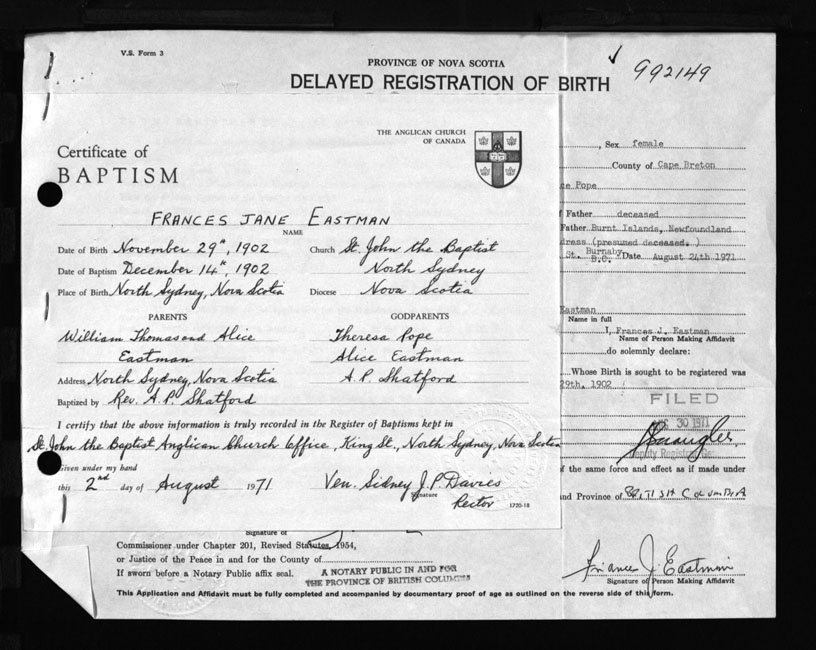 V.S. Form 3
PROVINCE OF NOVA SCOTIA
DELAYED REGISTRATION OF BIRTH
992149
THE ANGLICAN CHURCH
OF CANADA
Certificate of
BAPTISM
FRANCES JANE EASTMAN
NAME
Date of Birth November 29th, 1902
Church St. John the Baptist
Date of Baptism December 14th, 1902
North Sydney
Place of Birth North Sydney, Nova Scotia
Diocese Nova Scotia
PARENTS
GODPARENTS
William Thomas and Alice
Eastman
Theresa Pope
Alice Eastman
Address North Sydney, Nova Scotia
A. P. Shatford
Baptized by Rev. A. P. Shatford
I certify that the above information is truly recorded in the Register of Baptisms kept in
St. John the Baptist Anglican Church Office, King St., North Sydney, Nova Scotia
Given under my hand
this 2nd day of August 1971
Ven. Sidney J. P. Davies
Signature
Rector
1720-18
, Sex female
County of Cape Breton
ce Pope
f Father deceased
Father Burnt Islands, Newfoundland
dress (presumed deceased. )
St. Burnaby B.C. Date August 24th 1971
Eastman
Name in full
I, Frances J. Eastman
Name of Person Making Affidavit
do solemnly declare:
Whose Birth is sought to be registered was
29th, 1902
FILED
30 1971
Deputy Registrar
f the same force and effect as if made under
nd Province of BRITISH COLUMBIA
Signature of
Commissioner under Chapter 201, Revised Statutes, 1954,
or Justice of the Peace in and for the County of
If sworn before a Notary Public affix seal.
A NOTARY PUBLIC IN AND FOR
THE PROVINCE OF BRITISH COLUMBIA
Frances J. Eastman
Signature of Person Making Affidavit
This Application and Affidavit must be fully completed and accompanied by documentary proof of age as outlined on the reverse side of this form.